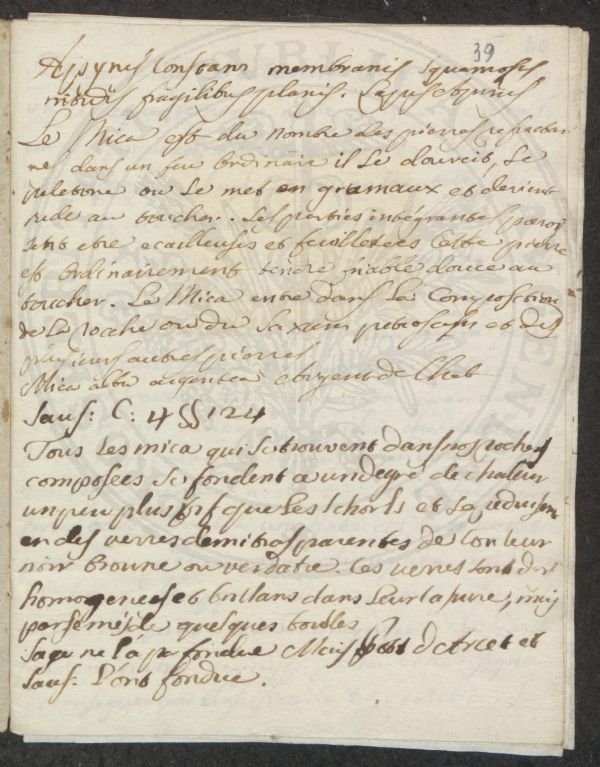 39
Apynis constans membranis squamosis
nitidis fragilibus planis. Lapis apyrus
Le Mica est du nombre des pierres refractai
res dans un feu ordinaire il se durcit, se
pelotone ou se met en grumaux et devient
rude au toucher. Les parties intégrantes paroi
sent etre ecailleuses et feuilletées Cette pierre
est ordinairement tendre friable douce au
toucher. Le Mica entre dans la Composition
de la roche ou du Saxum petrosum et de
plusieurs autres pierres
Mica alba argentea argent de Chat
Saus: C: 4 §§ 124
Tous les mica qui se trouvent dans nos roches
composées se fondent a un degré de chaleur
un peu plus vif que les schorls et se reduisen
en des verres demi trasparentes de couleur
noir broune ou verdatre. Ces verres sont
homogenes et brillans dans leur cassure, mais
parsemés de quelques boulles
Sage ne l'a pa fondue Mais Pott d'Arcet et
Saus: l'ont fondue.